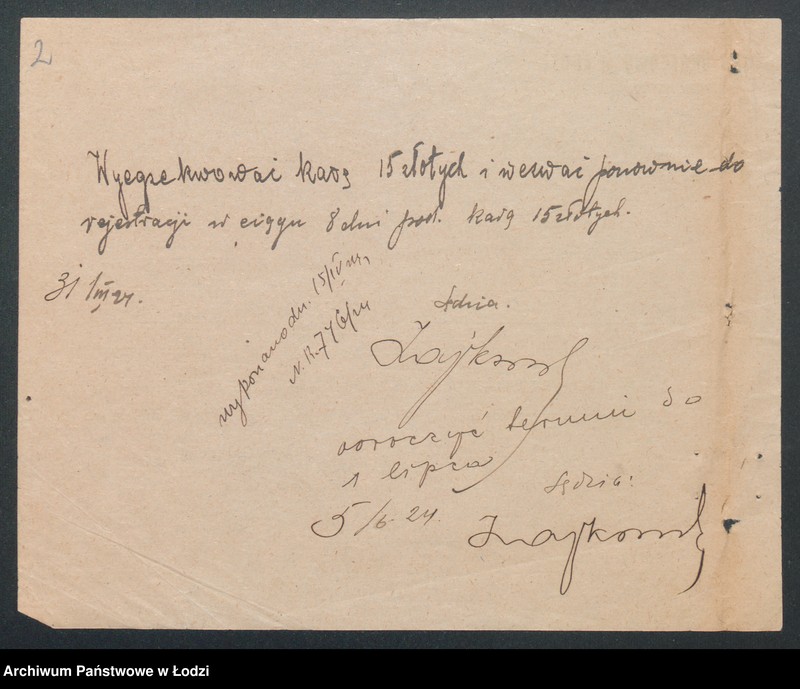 2
Wyegzekwować karę 15 złotych i wezwać ponownie do
rejestracji w ciągu 8 dni pod. karą 15 złotych.
31/III 24.
wykonano dn. 15/IV 24r,
N.R. 776/24
Sędzia.
odroczyć termin do
1 lipca
5/6 24.
Sędzia:
Archiwum Państwowe w Łodzi